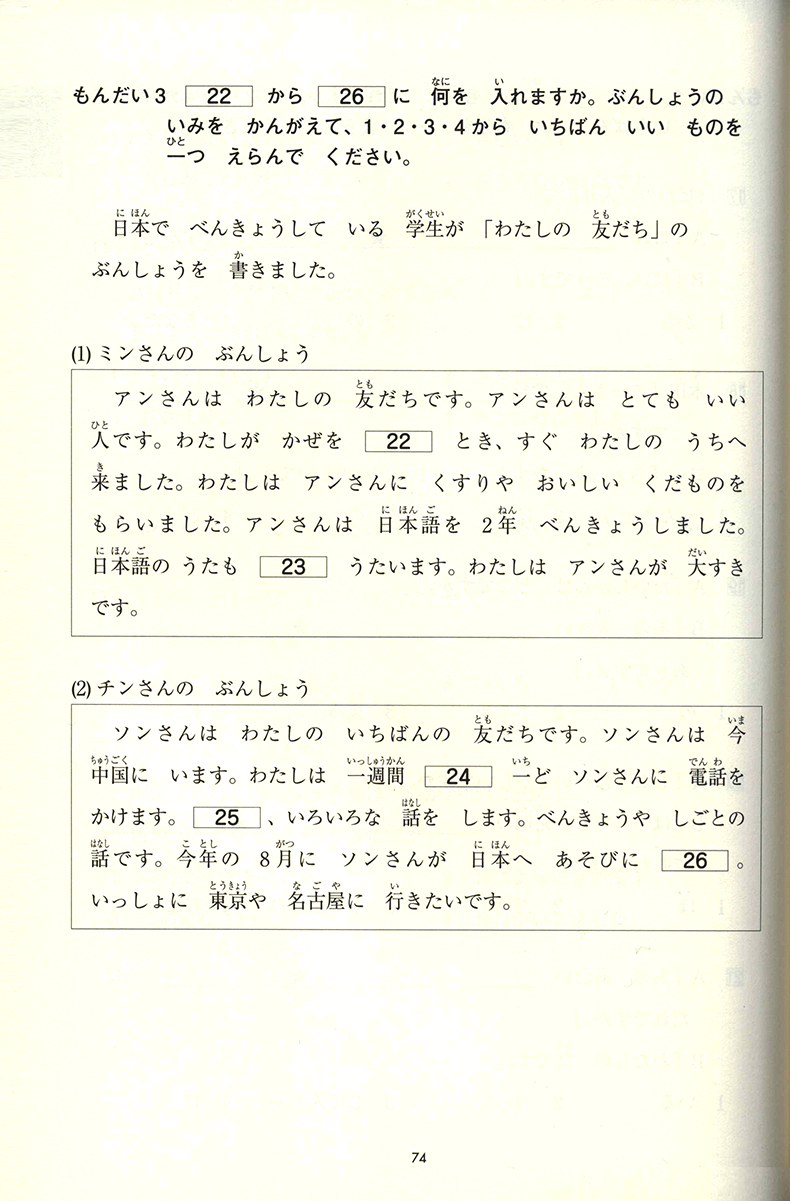 もんだい3 22 から 26 に 何を 入れますか。ぶんしょうの
いみを かんがえて、1・2・3・4から いちばん いい ものを
一つ えらんで ください。
日本で べんきょうして いる 学生が 「わたしの 友だち」の
ぶんしょうを 書きました。
(1) ミンさんの ぶんしょう
アンさんは わたしの 友だちです。アンさんは とても いい
人です。わたしが かぜを 22 とき、すぐ わたしの うちへ
来ました。わたしは アンさんに くすりや おいしい くだものを
もらいました。アンさんは 日本語を 2年 べんきょうしました。
日本語の うたも 23 うたいます。わたしは アンさんが 大すき
です。
(2) チンさんの ぶんしょう
ソンさんは わたしの いちばんの 友だちです。ソンさんは 今
中国に います。わたしは 一週間 24 一ど ソンさんに 電話を
かけます。 25 、いろいろな 話を します。べんきょうや しごとの
話です。今年の 8月に ソンさんが 日本へ あそびに 26 。
いっしょに 東京や 名古屋に 行きたいです。
74